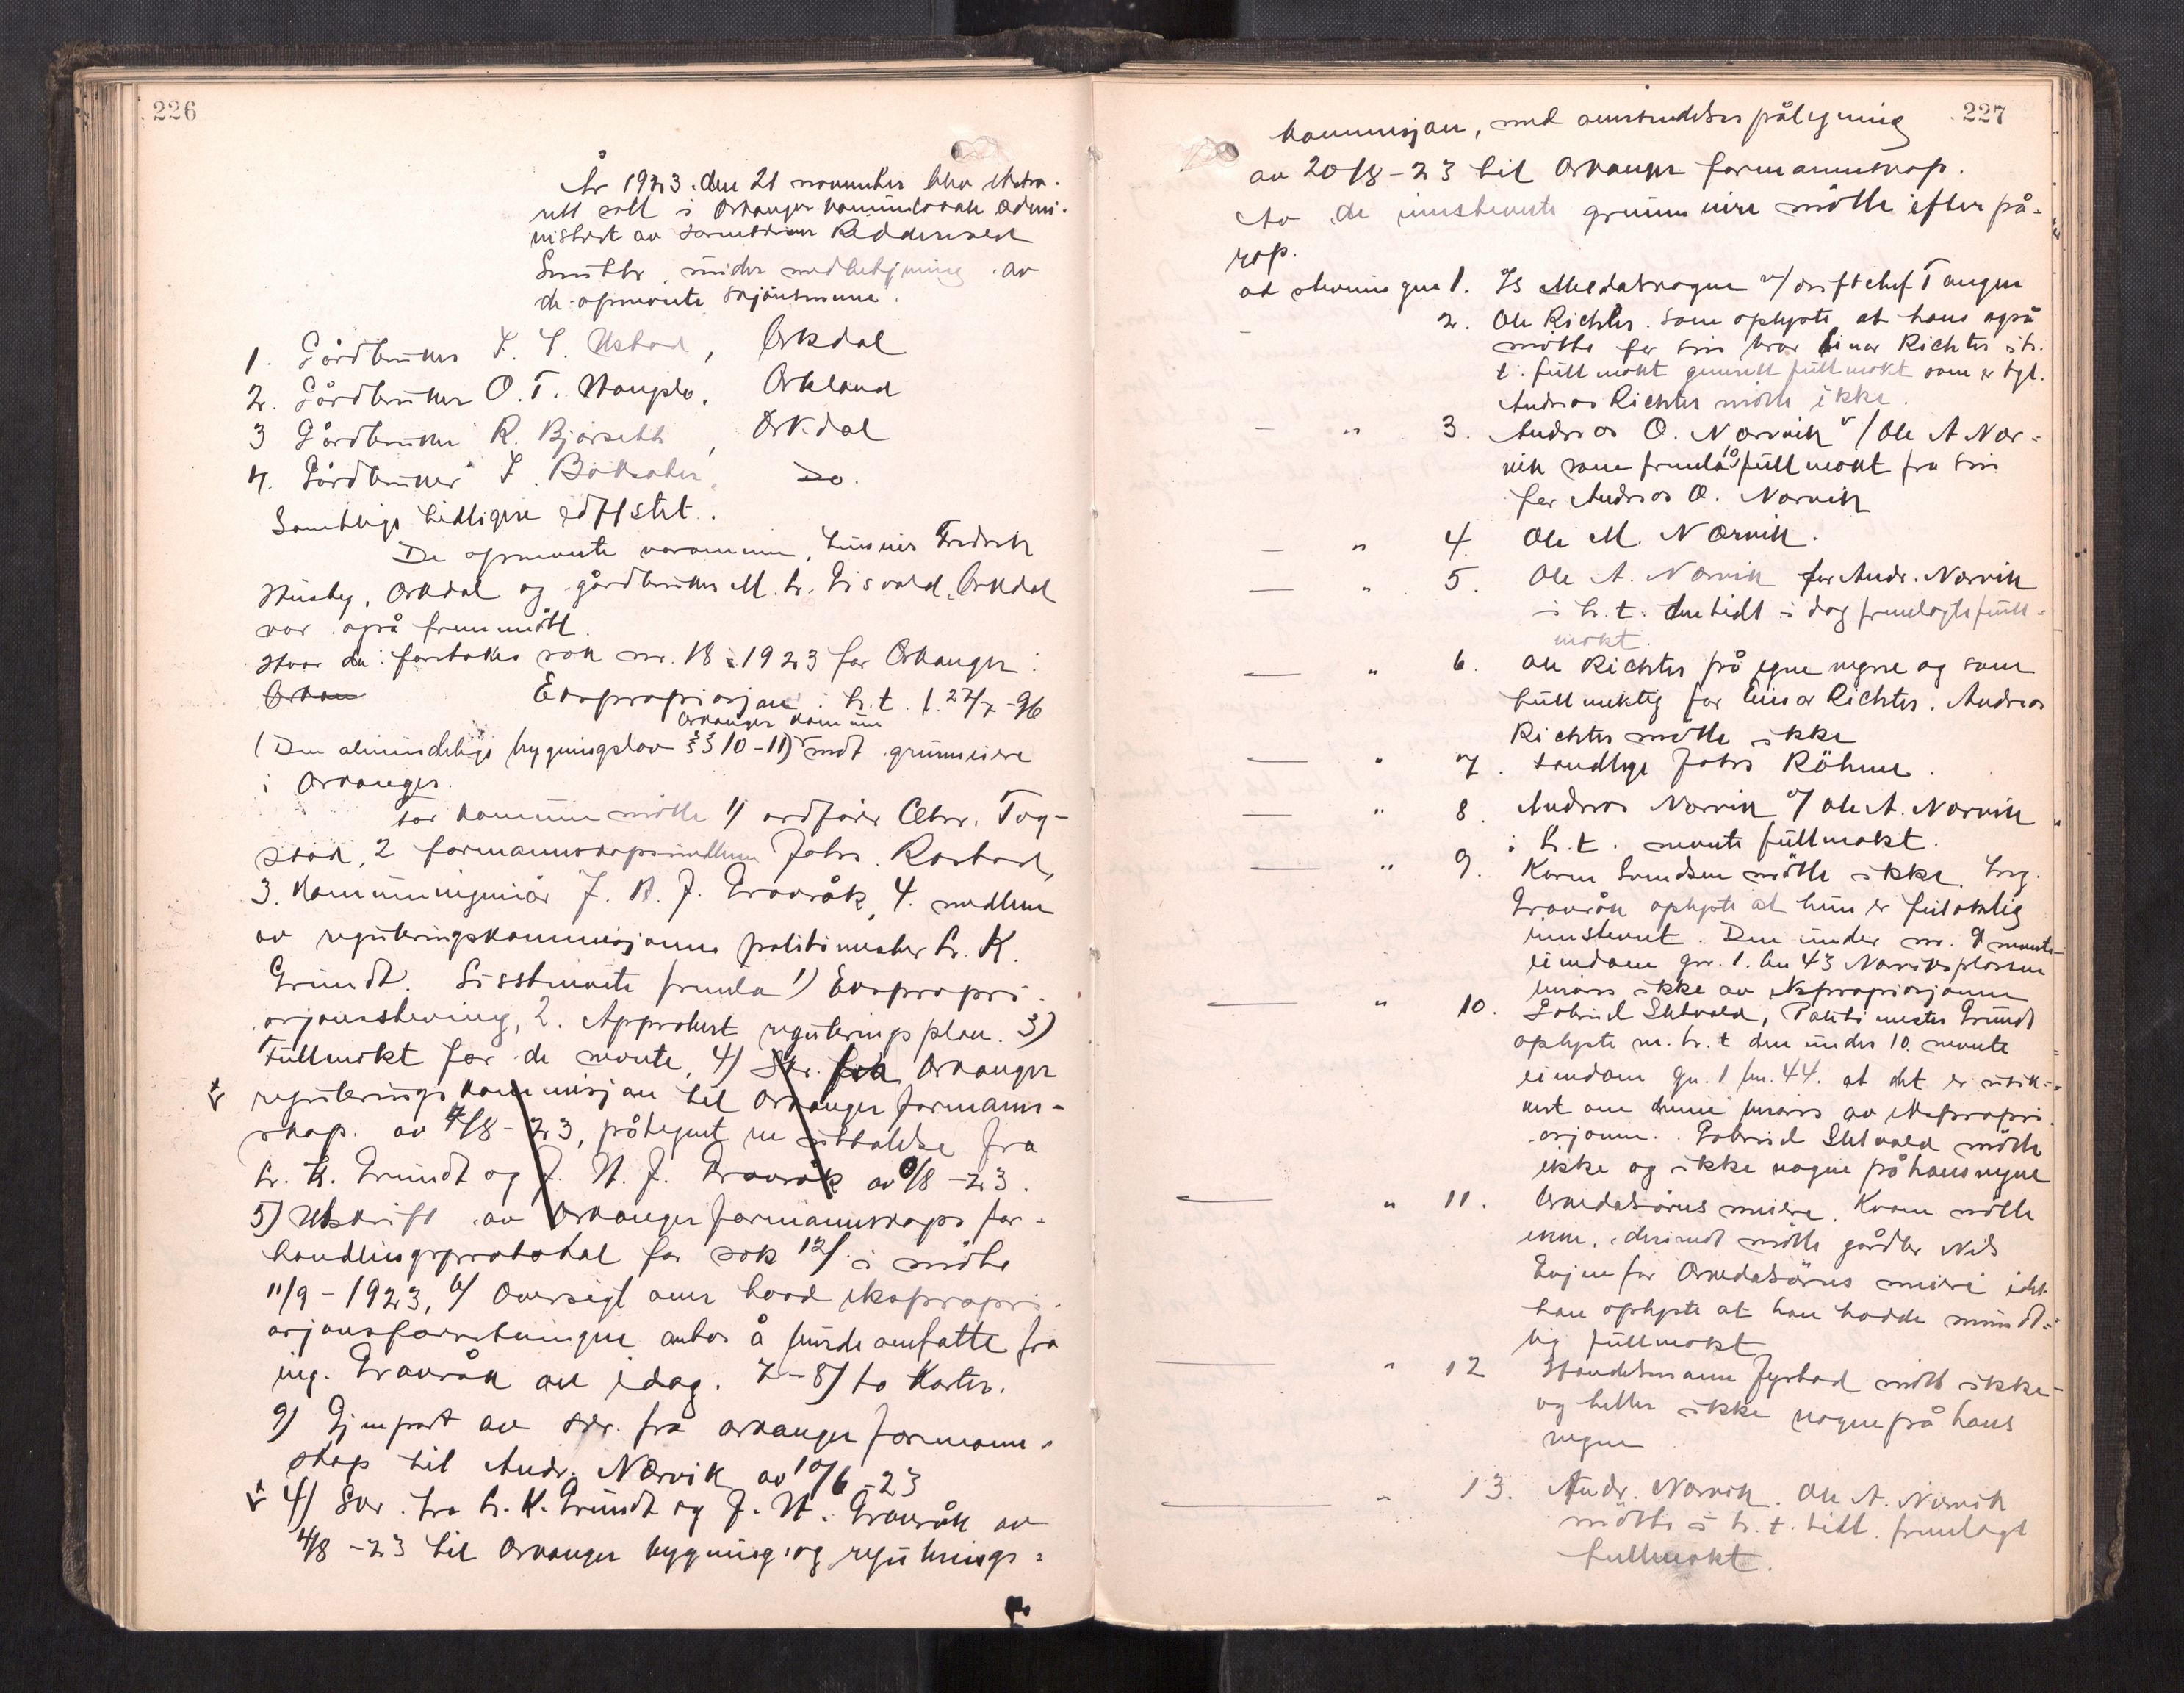 226
År 1923 den 21 november blev ekstra-
rett satt i Orkanger kommunelokale admi-
nistrert av sorenskriver Reddervold
Smitt under medbetjening av
de opnevnte skjönsmenn.
1. Gårdbruker I. I. Ustad, Orkdal
2. Gårdbruker O. T. Hongslo, Orkland
3 Gårdbruker R. Bjørseth, Orkdal
4. Gårdbruker I. Baksater, Do.
Samtlige tidligere edfestet.
De opnevnte varamenn, Fredrik
Husby, Orkdal og gårdbruker M. L. Lisvold, Orkdal
var også fremmött.
Hvor da: foretokes sak nr. 18 1923 for Orkanger:
Ekspropriasjon i h.t. l. 27/7-96
Orkanger kommune
(Den almindelige bygningslov §§ 10-11) mot grunneiere
i Orkanger.
For kommunen mötte 1) ordförer Chr. Tog-
stad, 2 formannskapsmedlem Johs. Rostad,
3. Kommuneingeniör J. N. J. Gravråk, 4. medlem
av reguleringskommisjonen politimester L. K.
Grundt. Sisstnevnte fremla 1) Ekspropri-
asjonsstevning, 2. Approbert reguleringsplan. 3)
Fullmakt for de nevnte, 4) Skr. fra Orkanger
reguleringskommisjon til Orkanger formann-
skap av 4/8-23, påtegnet en uttalelse fra
L. K. Grundt og J. N. J. Gravråk av /8-23.
5) Utskrift av Orkanger formannskaps for-
handlingsprotokol for sak 12/ i möte
11/9-1923, 6) Oversigt over hvad ekspropri-
asjonsforretningen antas å burde omfatte fra
ing. Gravråk av idag. 7-8) to Karter.
9) Gjenpart av skr. fra Orkanger formann-
skap til Andr. Nærvik av 10/6-23
4) Skr. fra L. K. Grundt og J. N. Gravråk av
4/8-23 til Orkanger bygnings og regulerings-
227
kommisjon, med pålegning
av 20/8-23 til Orkanger formannskap.
Av de innstevnte grunneiere mötte efter på-
rop.
ad stevningens 1. I/S Meldalskogen v/ driftchef Tangen
2. Ole Richter som oplyste at hans også
mötte for sin bror Einar Richter i h.
t. fullmakt generell fullmakt som er tgl.
Andreas Richter mötte ikke.
— " 3. Andreas O. Nærvik v/ Ole A Nær-
vik som fremla fullmakt fra sin
far Andreas O. Nærvik
— " 4. Ole M. Nærvik.
— " 5. Ole A. Nærvik for Andr. Nærvik
i h.t. den tidl i dag fremlagte full-
makt.
— " 6. Ole Richter på egne vegne og som
fullmektig for Einar Richter. Andreas
Richter mötte ikke
— " 7. Johs Röhme.
— " 8. Andreas Nærvik v/ Ole A. Nærvik
i h.t. nevnte fullmakt.
— " 9. Karen Svendsen mötte ikke. Ing.
Gravråk oplyste at hun er feilaktig
innstevnt. Den under nr. 9 nevnte
eiendom gnr. 1. bn 43 Nærviksplassen
berøres ikke av ekspropriasjonen
— " 10. Gabriel Sletvold, Politimester Grundt
oplyste m. h. t den under 10. nevnte
eiendom gn. 1 bn. 44. at det er usik-
kert om denne berøres av ekspropri-
asjonen. Gabriel Sletvold mötte
ikke og ikke nogen på hans vegne
— " 11. Orkedalsörens meieri. Kvam mötte
ikke, derimot mötte gårdbr Nils
Evjen for Orkedalsörens meieri idet
han oplyste at han hadde mundt-
lig fullmakt
— " 12 Handelsmann Fyrstad mött ikke
og heller ikke nogen på hans
vegne
— " 13. Andr. Nærvik. Ole A. Nærvik
mötte i h. t. tidl. fremlagt
fullmakt.